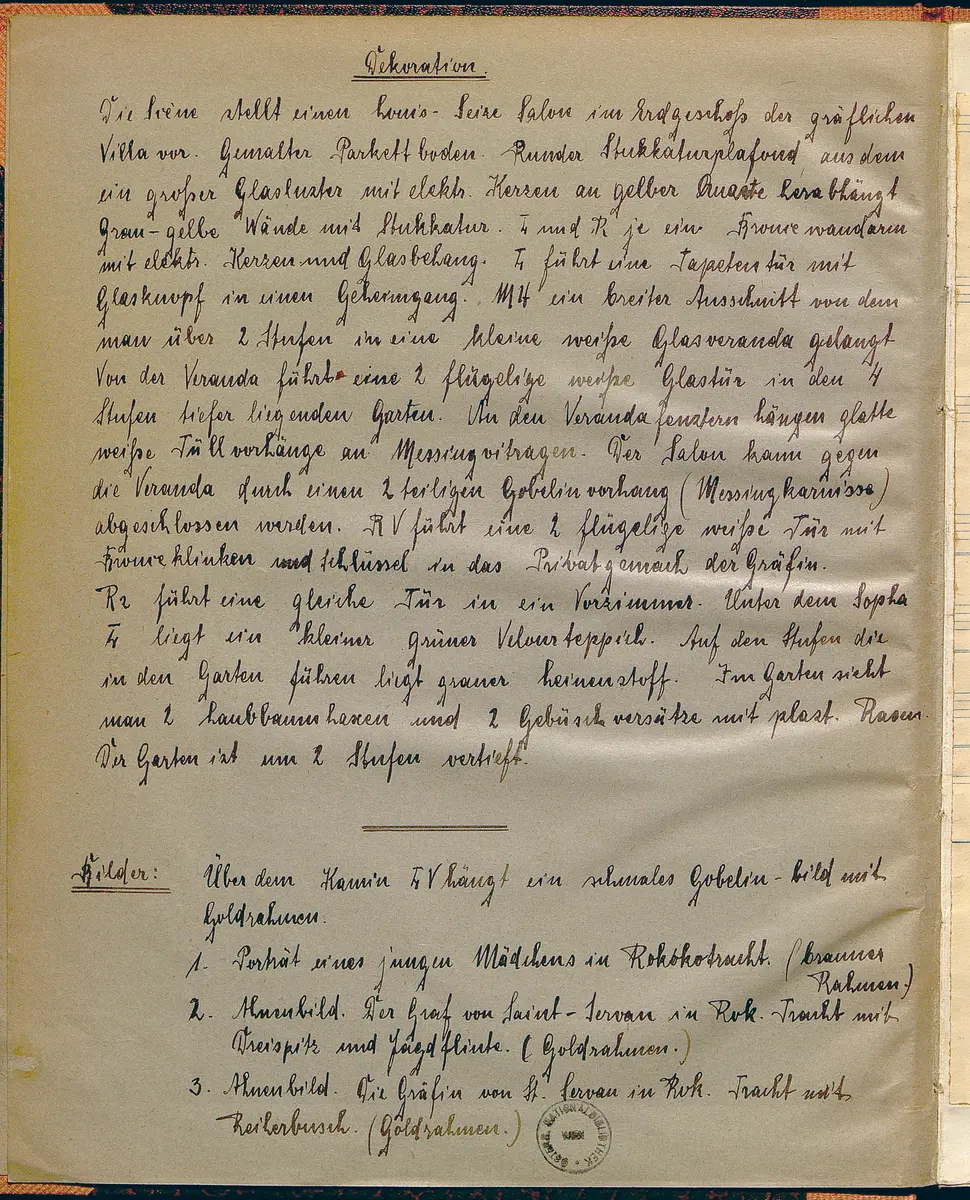 Dekoration.
Die Scène stellt einen Louis-Seize Salon im Erdgeschoß der gräflichen
Villa vor. Gemalter Parkettboden. Runder Stukkaturplafond, aus dem
ein großer Glasluster mit elektr. Kerzen an gelber Quaste herabhängt
Grau-gelbe Wände mit Stukkatur. L und R je ein Broncewandarm
mit elektr. Kerzen und Glasbehang. L führt eine Tapetentür mit
Glasknopf in einen Geheimgang. M4 ein breiter Ausschnitt von dem
man über 2 Stufen in eine kleine weiße Glasveranda gelangt
Von der Veranda führt eine 2 flügelige weiße Glastür in den 4
Stufen tiefer liegenden Garten. An den Verandafenstern hängen glatte
weiße Tüllvorhänge an Messingvitragen. Der Salon kann gegen
die Veranda durch einen 2 teiligen Gobelinvorhang (Messingkarnisse)
abgeschlossen werden. RV führt eine 2 flügelige weiße Tür mit
Bronceklinken und Schlüssel in das Privatgemach der Gräfin.
R2 führt eine gleiche Tür in ein Vorzimmer. Unter dem Sopha
L liegt ein kleiner grüner Velourteppich. Auf den Stufen die
in den Garten führen liegt grauer Leinenstoff. Im Garten sieht
man 2 Laubbaumhaxen und 2 Gebüschversätze mit plast. Rasen.
Der Garten ist um 2 Stufen vertieft.
Bilder: Über dem Kamin LV hängt ein schmales Gobelin-bild mit
Goldrahmen.
1. Porträt eines jungen Mädchens in Rokokotracht. (brauner
Rahmen.)
2. Ahnenbild. Der Graf von Saint-Servan in Rok. Tracht mit
Dreispitz und Jagdflinte. (Goldrahmen.)
3. Ahnenbild. Die Gräfin von St. Servan in Rok. Tracht mit
Reiherbusch. (Goldrahmen.)
ÖSTERR. NATIONALBIBLIOTHEK